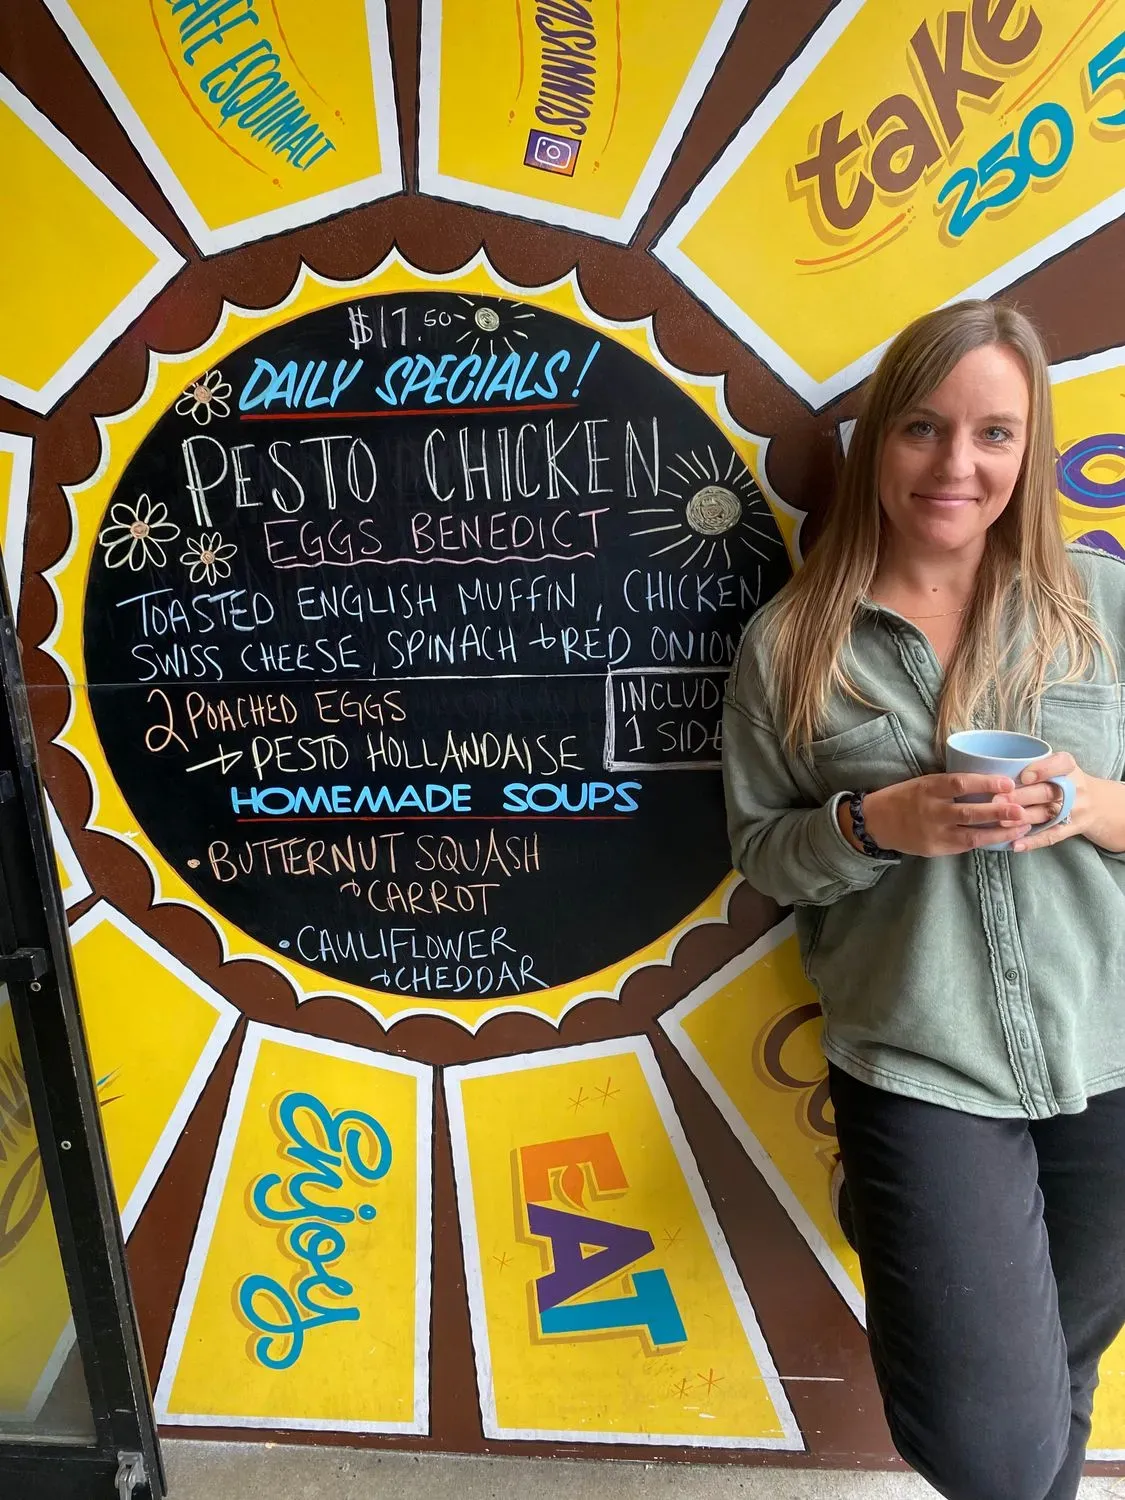 AFE ESQUIMALT
take
250 5
$17.50
DAILY SPECIALS!
PESTO CHICKEN
EGGS BENEDICT
TOASTED ENGLISH MUFFIN, CHICKEN
SWISS CHEESE, SPINACH + RED ONION
2 POACHED EGGS
+ PESTO HOLLANDAISE
INCLUD
1 SIDE
HOMEMADE SOUPS
• BUTTERNUT SQUASH
+ CARROT
• CAULIFLOWER
+ CHEDDAR
Enjoy
EAT